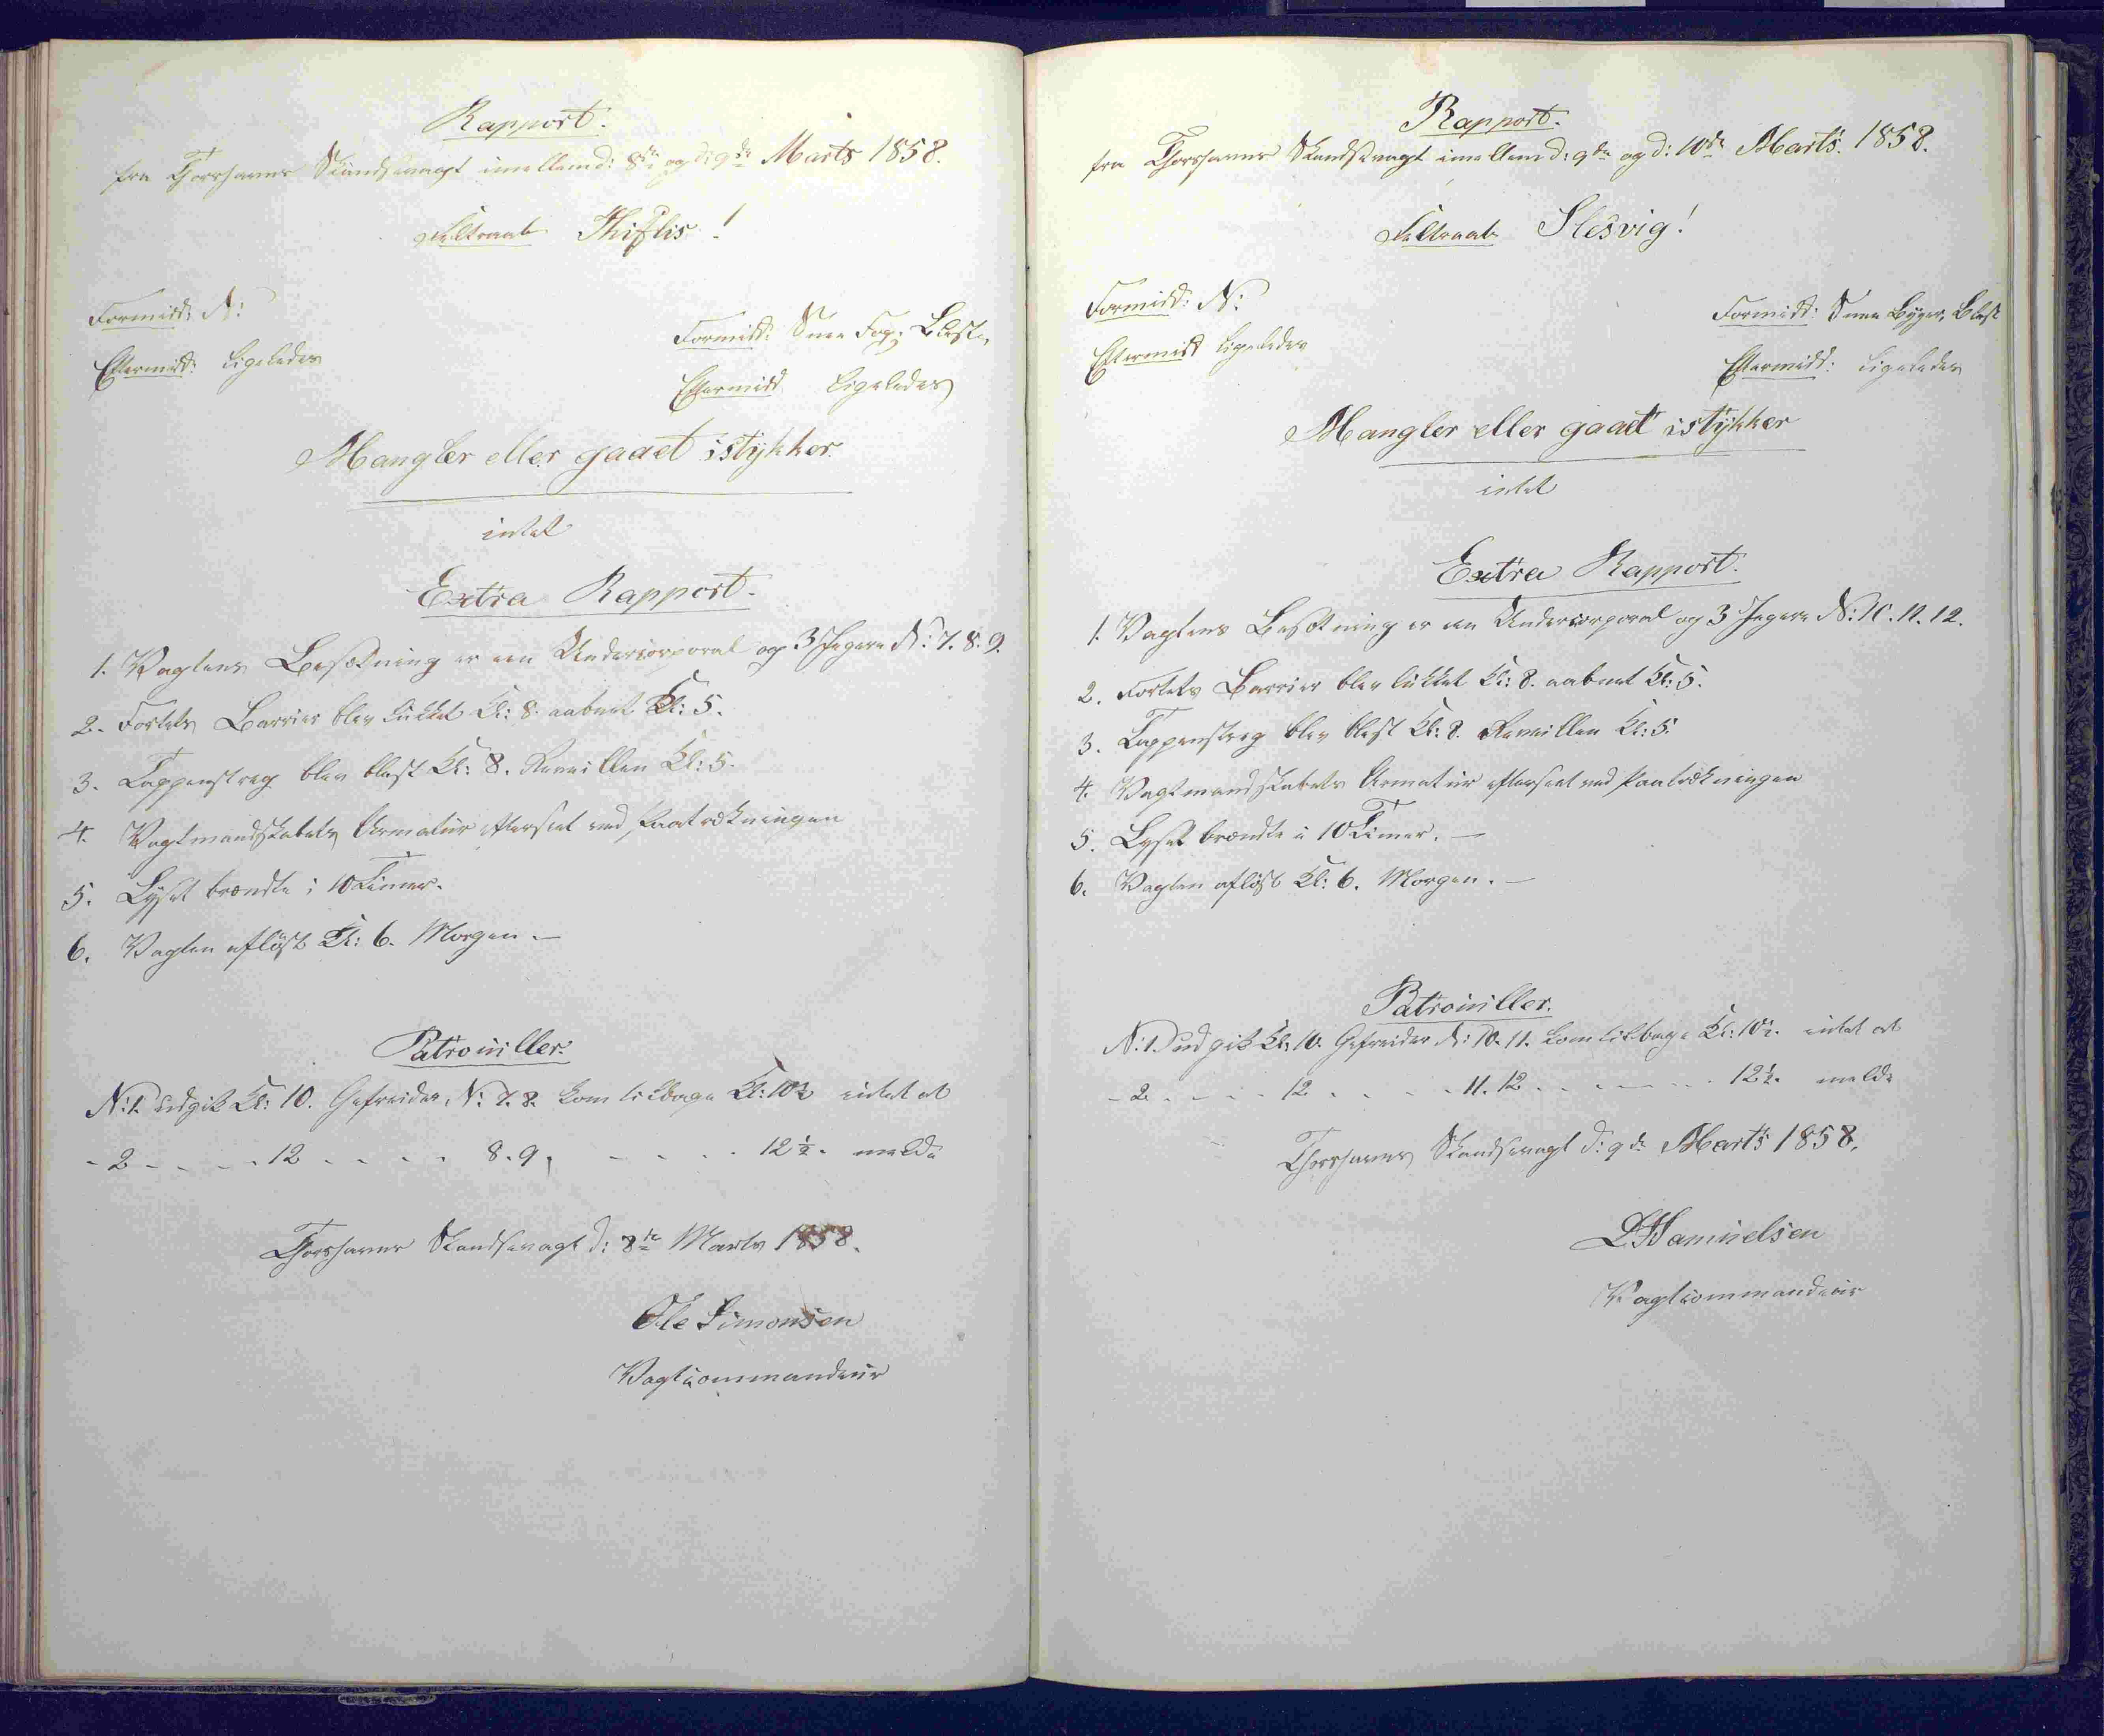 Rapport.
fra Thorshavns Skandsevagt imellem d: 8de og d: 9de Marts 1858.
Feltraab Thiflis!
Formidd: N:
Eftermidd: ligeledes
Formidd: Snee Fog; Blæst,
Eftermidd ligeledes
Mangler eller gaaet istykker.
intet
Extra Rapport.
1. Vagtens Besætning er een Undercorporal og 3 Jegere N: 7. 8. 9.
2. Fortets Barrier blev lukket Kl: 8. aabnet Kl: 5.
3. Tappenstreg blev blæst Kl: 8. Reveillen Kl: 5.
4. Vagtmandskabets Armatur efterseet ved Paatrækningen
5. Lyset brændte i 10 Timer.
6. Vagten afløst Kl: 6. Morgen. —
Patrouiller.
N: 1. udgik Kl: 10. Gefreider N: 7. 8. kom tilbage Kl: 10½ intet at
- 2 - - - - 12 - - - - 8. 9, - - - - 12½. melde
Thorshavns Skandsevagt d: 8de Marts 1858.
Ole Simonsen
Vagtcommandeur
Rapport.
fra Thorshavns Skandsevagt imellem d: 9de og d: 10de Marts. 1858.
Feltraab Slesvig!
Formidd: N:
Eftermidd ligeledes
Formidd: Snee Byger, Blæst
Eftermidd: ligeledes
Mangler eller gaaet istykker
intet
Extra Rapport.
1. Vagtens Besætning er een Undercorporal og 3 Jegere N: 10. 11. 12.
2. Fortets Barrier blev lukket Kl: 8. aabnet Kl: 5.
3. Tappenstreg blev blæst Kl: 8. Reveillen Kl: 5.
4. Vagtmandskabets Armatur efterseet ved Paatrækningen
5. Lyset brændte i 10 Timer. —
6. Vagten afløst Kl: 6. Morgen. —
Patrouiller.
N: 1. udgik Kl: 10. Gefreider N: 10. 11. kom tilbage Kl: 10½. intet at
- 2 - - - - 12 - - - - 11. 12 - - - - - 12½. melde
Thorshavns Skandsevagt d: 9de Marts 1858.
Samuelsen
Vagtcommandeur